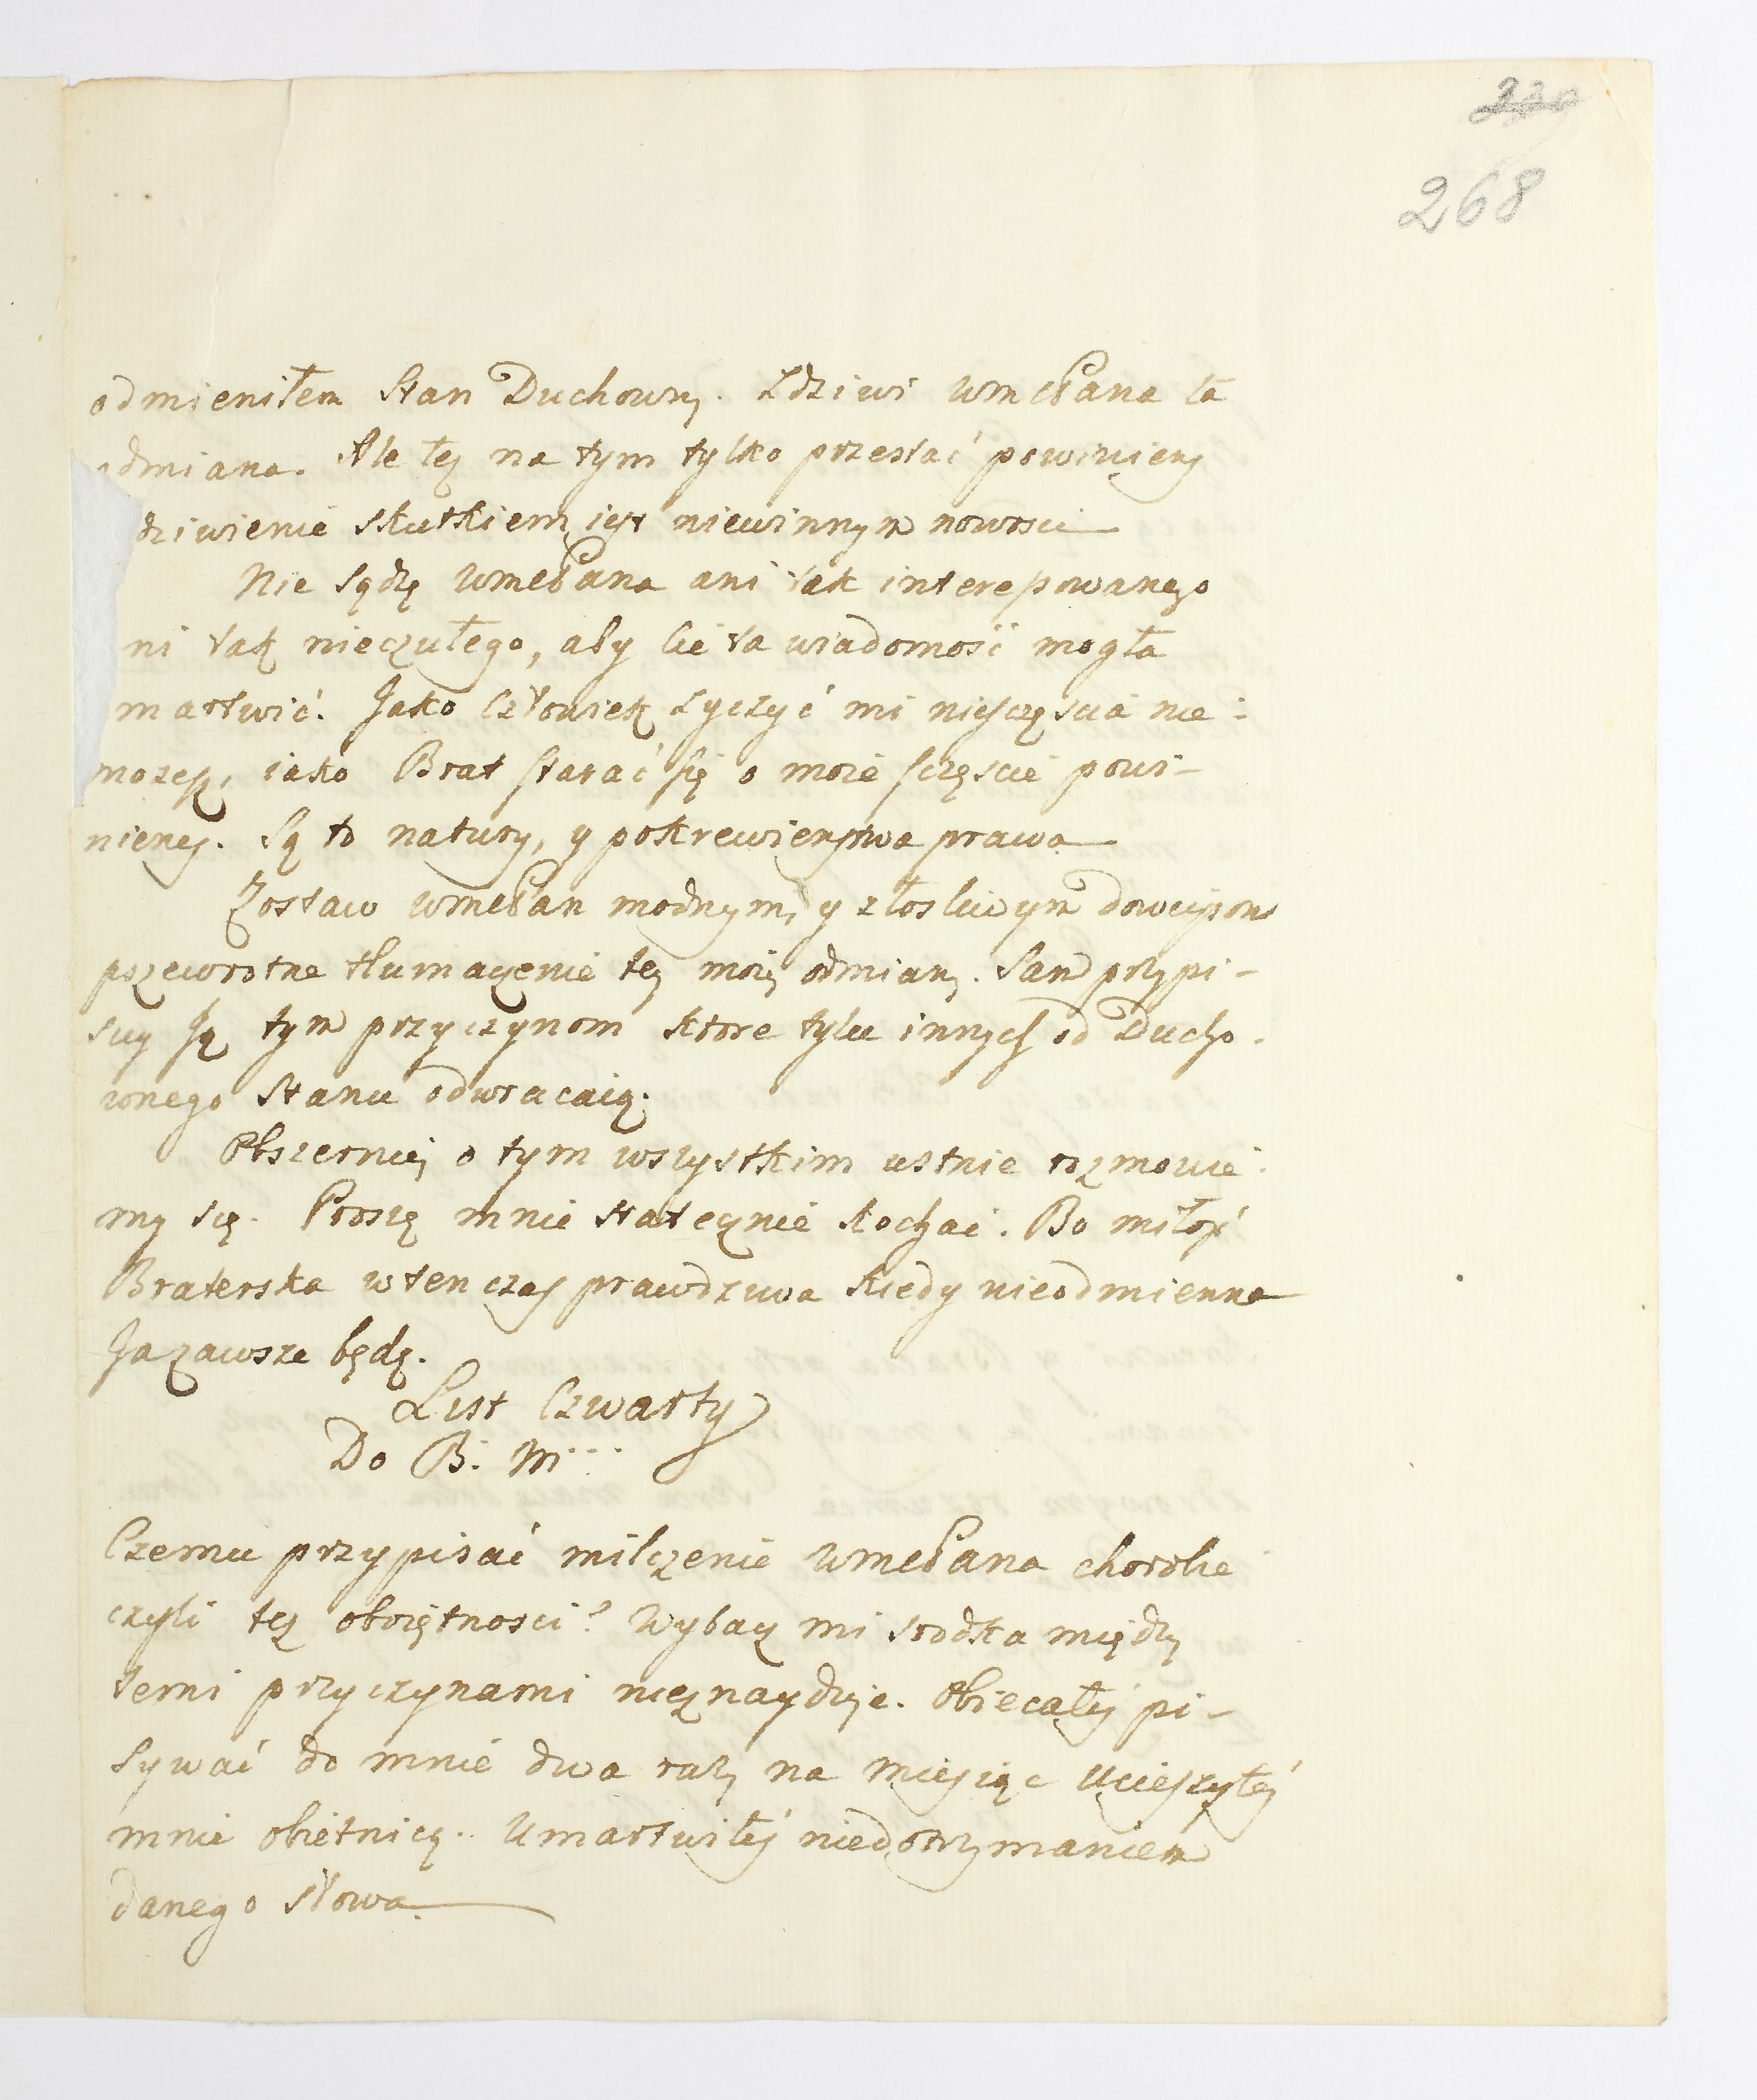 268
odmieniłem Stan Duchowny. Zdziwi WmcPana ta
odmiana. Ale tez na tym tylko przestać powinienes
dziwienie skutkiem iest niewinnym nowosci
Nie sądzę WmcPana ani tak interessowanego
ni tak nieczułego, aby Cie ta wiadomość mogła
martwić. Jako Człowiek zyczyć mi niesczęscia nie-
mozesz, iako Brat starać się o moie sczęscie powi-
nienes. Są to natury, y pokrewieństwa prawa
Zostaw WmcPan modnym, y złosliwym dowcipom
przewrotne tłumaczenie tey moiey odmiany. Sam przypi-
suy Ją tym przyczynom ktore tylu innych od Ducho-
wnego Stanu odwracaią.
Obszerniey o tym wszystkim ustnie rozmowie-
my się. Proszę mnie statecznie kochać. Bo miłość
Braterska wtenczas prawdziwa kiedy nieodmienna
Ja zawsze będę.
List Czwarty
Do B: M...
Czemu przypisać milczenie WmcPana chorobie
czyli tez oboiętnosci? Wybacz mi srodka między
temi przyczynami nieznayduję. Obiecałeś pi-
sywać do mnie dwa razy na miesiąc Ucieszyłeś
mnie obietnicą. Umartwiłeś niedotrzymaniem
danego słowa